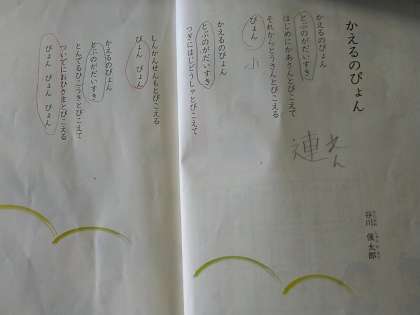 かえるのぴょん
谷川 俊太郎
たにかわ しゅんたろう
かえるのぴょん
とぶのがだいすき
はじめにかあさんとびこえて
それからとうさんとびこえる
ぴょん
かえるのぴょん
とぶのがだいすき
つぎにはじどうしゃとびこえて
しんかんせんもとびこえる
ぴょん ぴょん
かえるのぴょん
とぶのがだいすき
とんでるひこうきとびこえて
ついでにおひさまとびこえる
ぴょん ぴょん ぴょん
連
れん
小